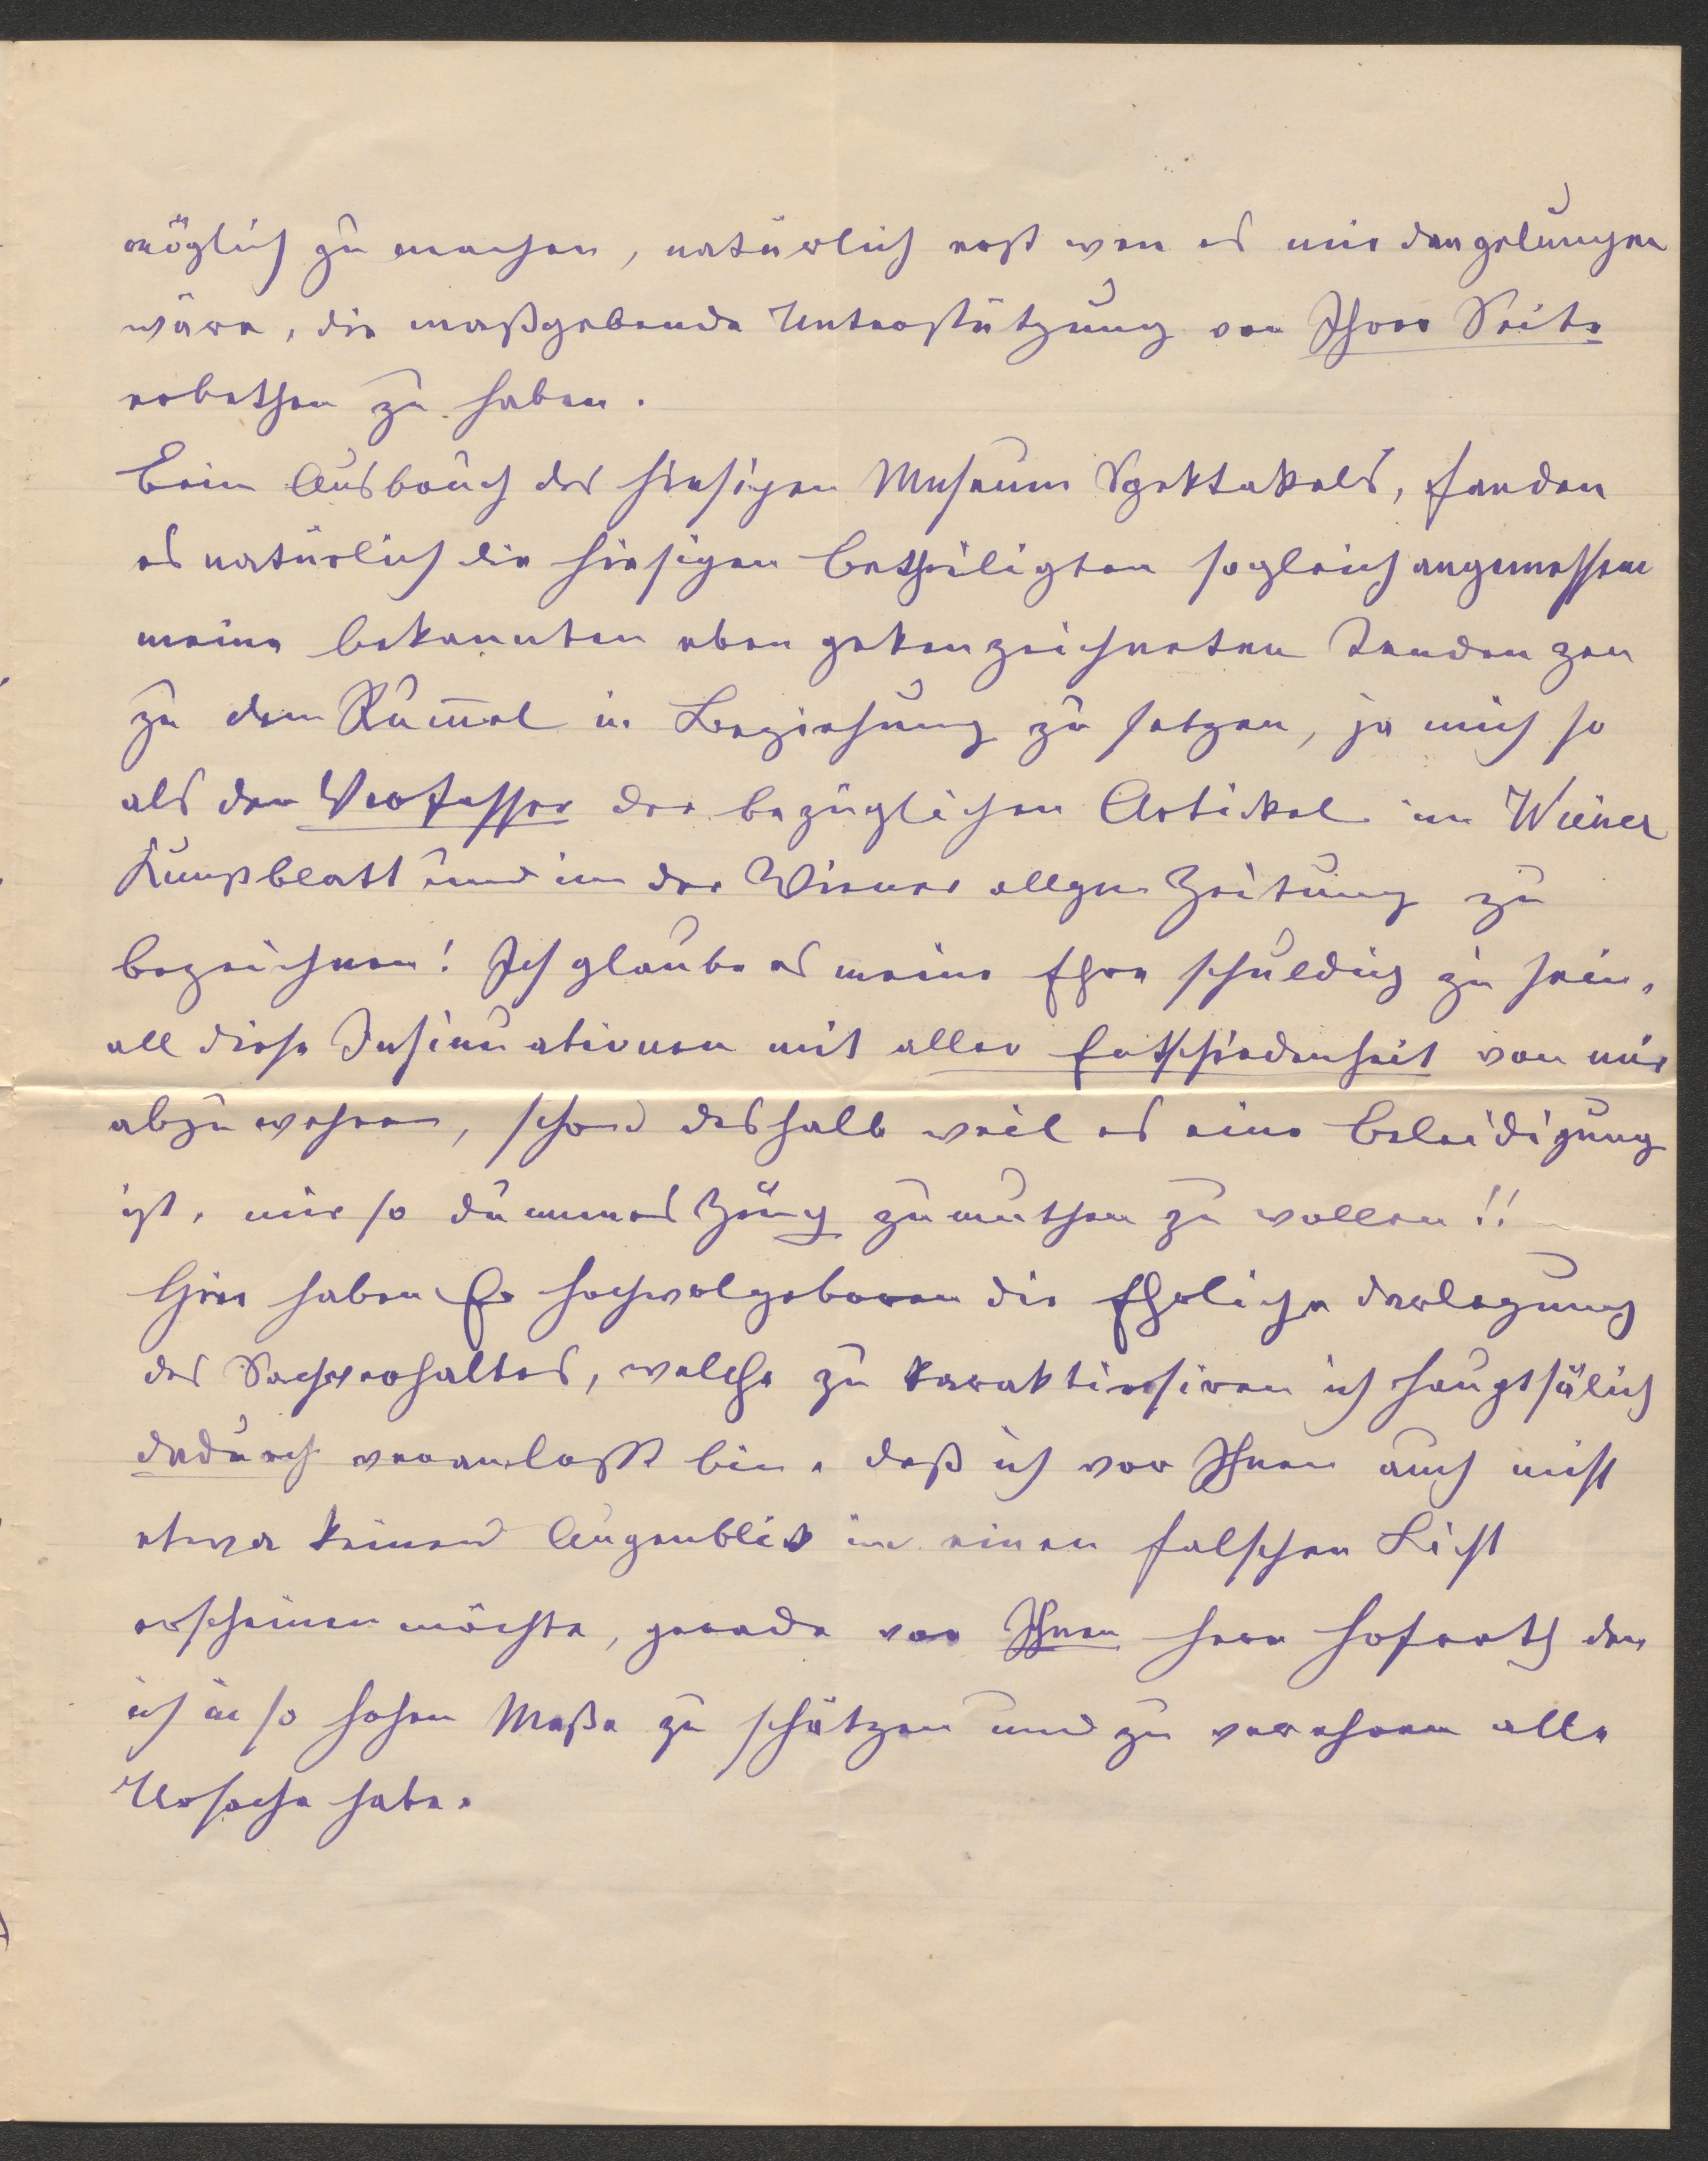 möglich zu machen, natürlich erst wen es mir dan gelungen
wäre, die maßgebende Unterstützung von Ihrer Seite
erbethen zu haben.
Beim Ausbruch des hiesigen Museum Spektakels, fanden
es natürlich die hiesigen Betheiligten sogleich angemessen
meine bekannten eben gekenzeichneten Tendenzen
zu dem Rum̅el in Beziehung zu setzen, ja mich so
als den Verfasser der bezüglichen Artikel im Wiener
Kunstblatt und in der Wiener allgm Zeitung zu
bezeichnen! Ich glaube es meine Ehre schuldig zu sein,
all diese Insinuationen mit aller Entschiedenheit von mir
abzuwehren, schon deshalb weil es eine Beleidigung
ist, mir so dummes Zeug zumuthen zu wollen!!
Hier haben Er hochwolgeboren die Ehrliche darlegung
des Sachverhaltes, welche zu karaktirisiren ich hauptsälich
dadurch veranlasst bin, daß ich vor Ihnen auch nicht
etwa keinen Augenblick in einen falschen Licht
erscheinen möchte, gerade vor Ihnen Herr Hofrath den
ich in so hohen Maße zu schätzen und zu verehren alle
Ursache habe.